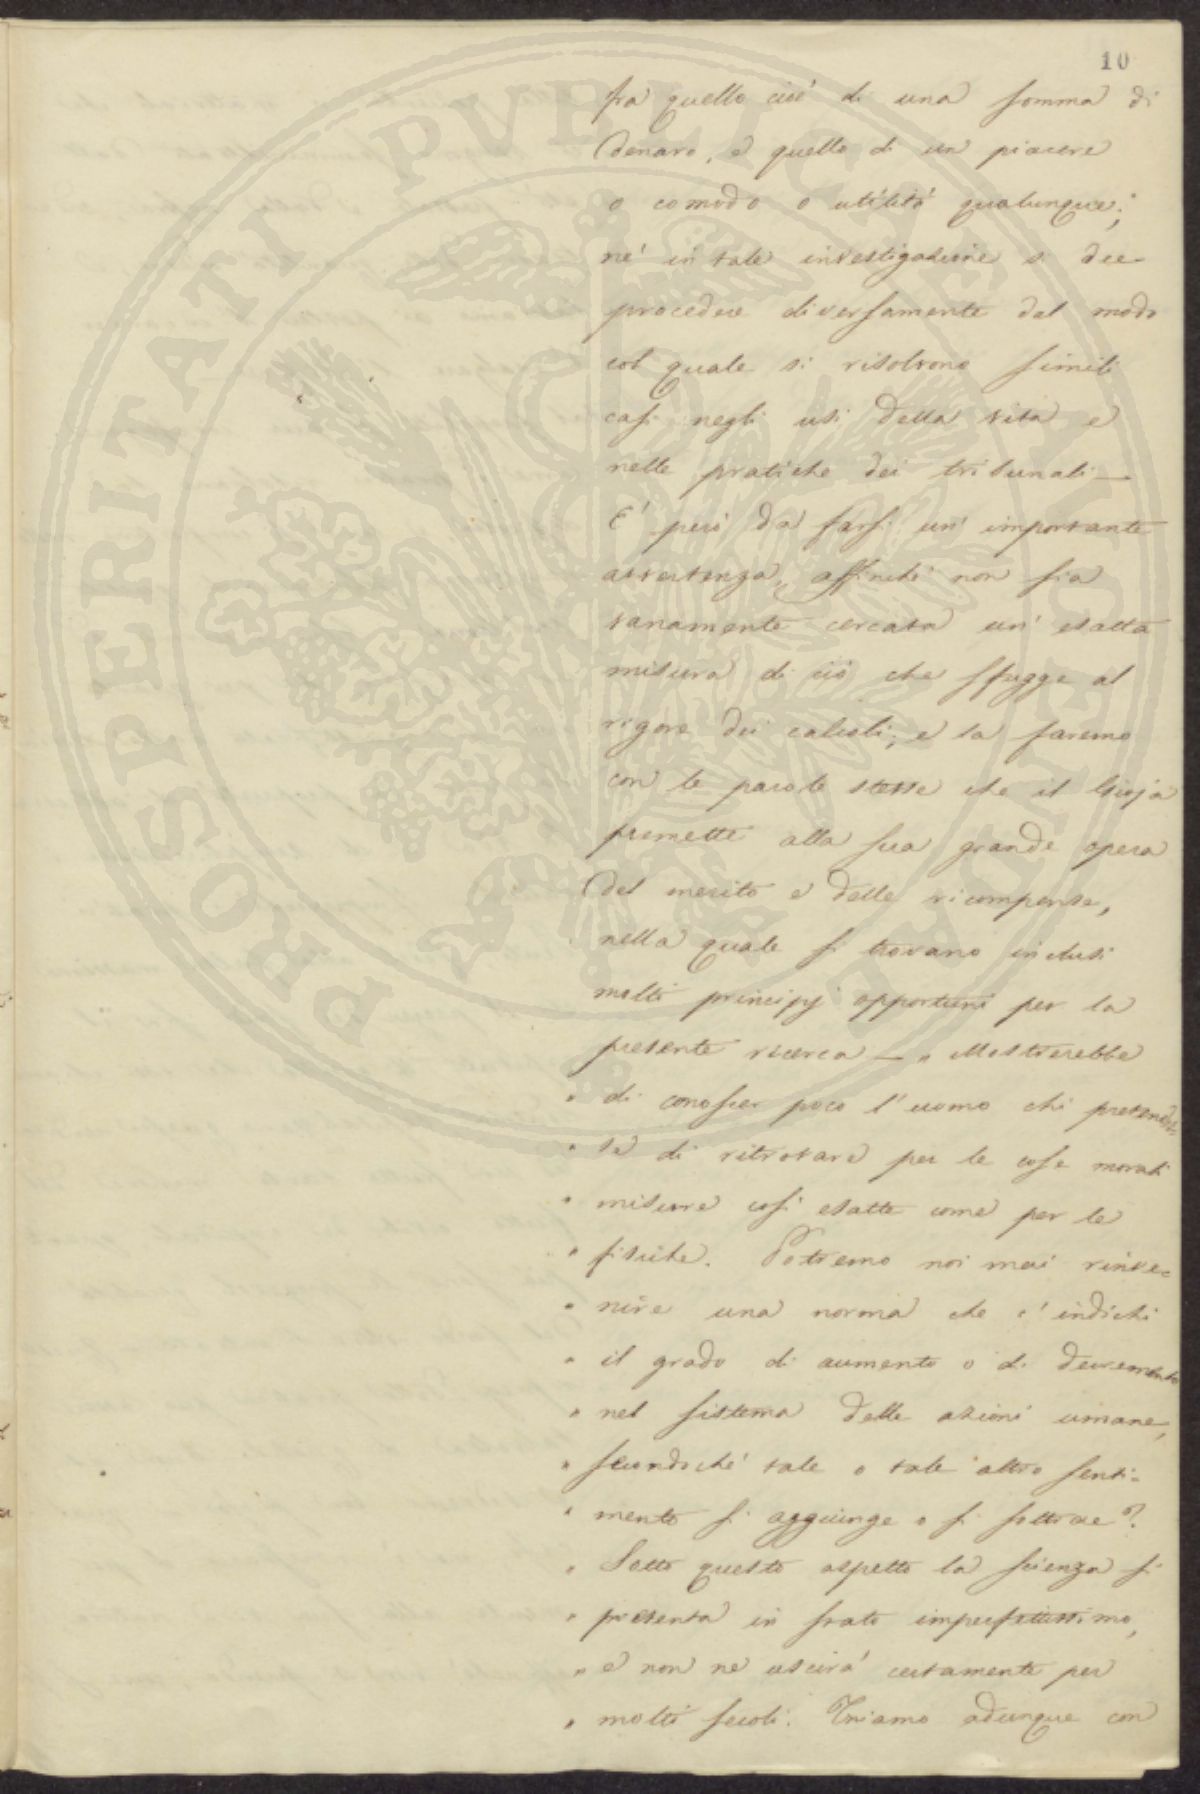 10
fra quello cioè di una somma di
denaro, e quello di un piacere
o comodo o utilità qualunque;
nè in tale investigazione si dee
procedere diversamente dal modo
col quale si risolvono simili
casi negli usi della vita e
nelle pratiche dei tribunali —
E' però da farsi un' importante
avvertenza, affinchè non sia
vanamente cercata un' esatta
misura di ciò che sfugge al
rigore dei calcoli; e la faremo
con le parole stesse che il Gioja
premette alla sua grande opera
del merito e delle ricompense,
nella quale si trovano inclusi
molti principj opportuni per la
presente ricerca — „ Mostrerebbe
„ di conoscer poco l'uomo chi pretendes-
„ se di ritrovare per le cose morali
„ misure così esatte come per le
„ fisiche. Potremo noi mai rinve-
„ nire una norma che c'indichi
„ il grado di aumento o di decremento
„ nel sistema delle azioni umane,
„ secondochè tale o tale altro senti-
„ mento si aggiunge o si sottrae?
„ Sotto questo aspetto la scienza si
„ presenta in stato imperfettissimo,
„ e non ne uscirà certamente per
„ molti secoli. Uniamo adunque con
PROSPERITATI PVBLICAE AVGENDAE